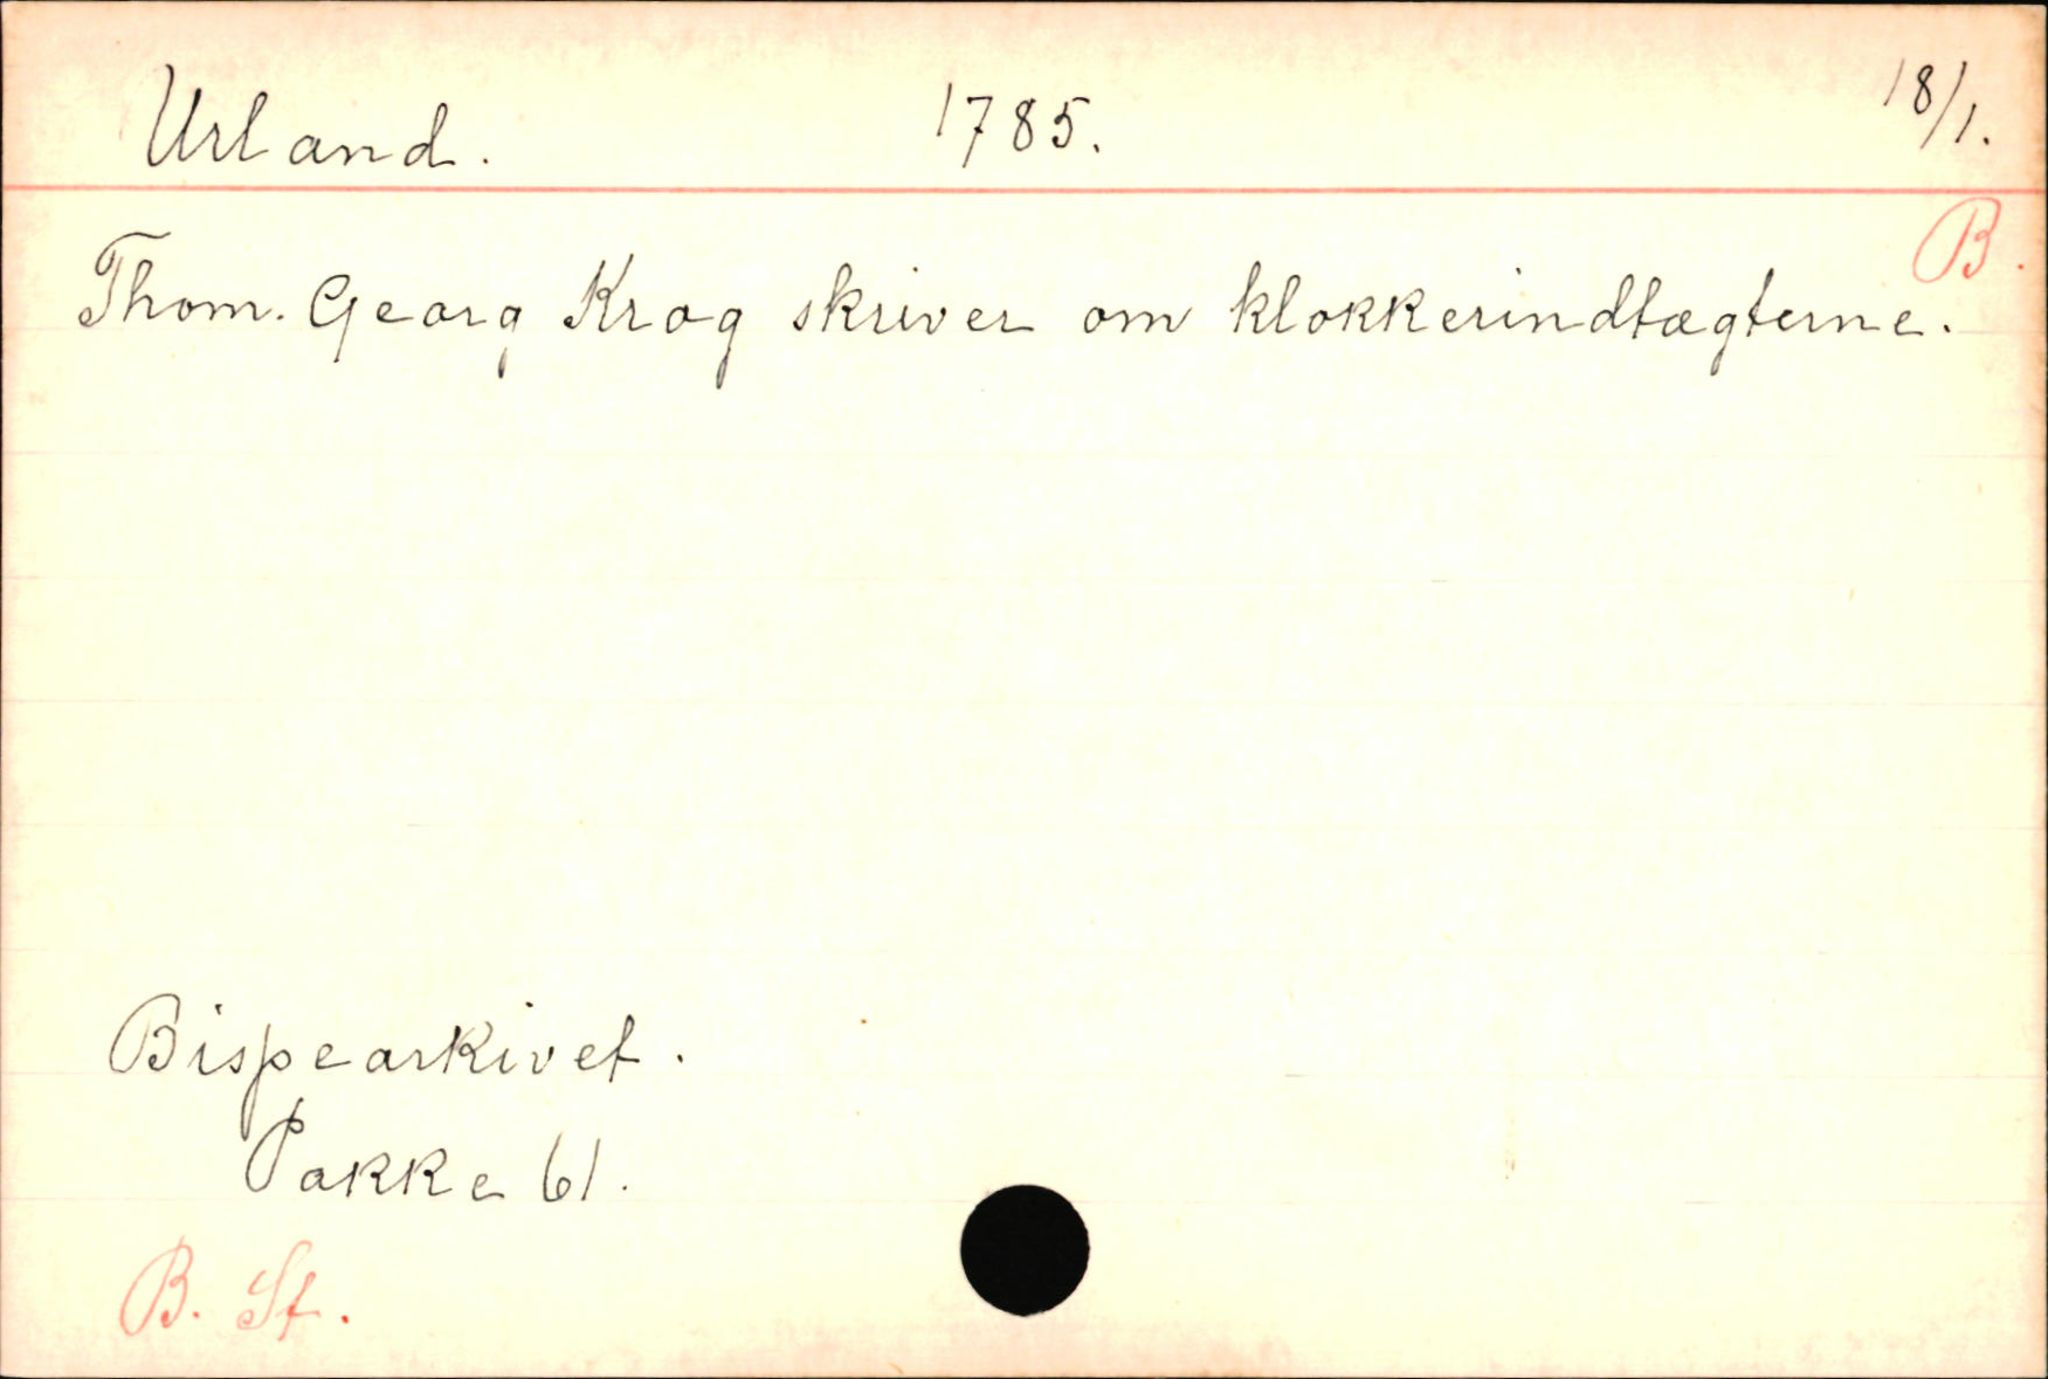 Urland. 1785. 18/1.
B.
Thom. Georg Krog skriver om klokkerindtægterne.
Bispearkivet.
Pakke 61.
B. St.